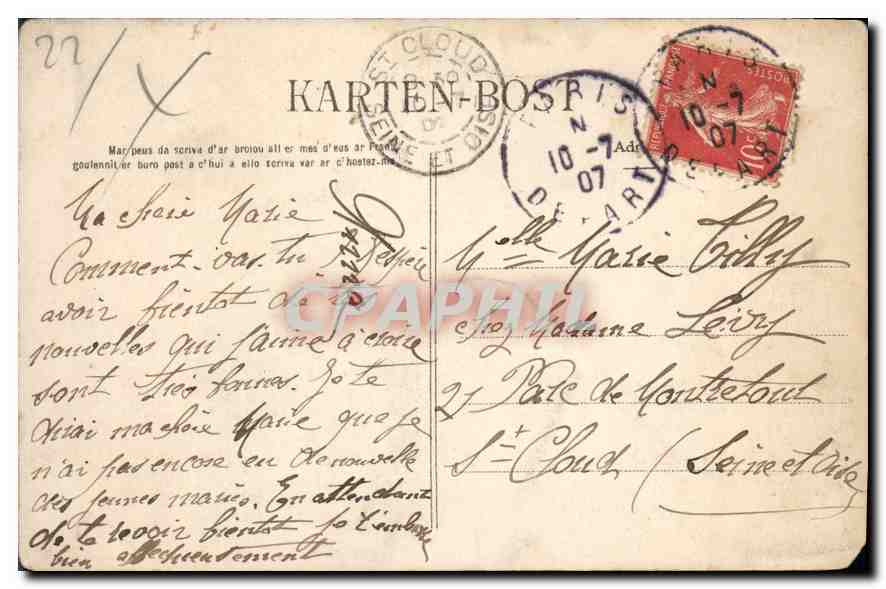 22/
ST CLOUD
SEINE ET OISE
KARTEN-BOST
PARIS
N
10-7
07
DEPART
PARIS
N
10-7
07
DEPART
POSTES
10c
Mar peus da scriva d'ar broiou all er mes d'eus ar Frans
goulennit er buro post a c'hui a ello scriva var ar c'hostez-ma
Adr
Ma chère Marie
Comment vas-tu J'espère
avoir bientot de tes
nouvelles qui j'aime à croire
sont très bonnes. Je te
dirai ma chère Marie que je
n'ai pas encore eu de nouvelle
des jeunes mariés. En attendant
de te revoir bientot je t'embrasse
bien affectueusement
Melle Marie Tilly
chez Madame Lévy
21 Parc de Montretout
St Cloud (Seine et Oise)
CPAPHIL